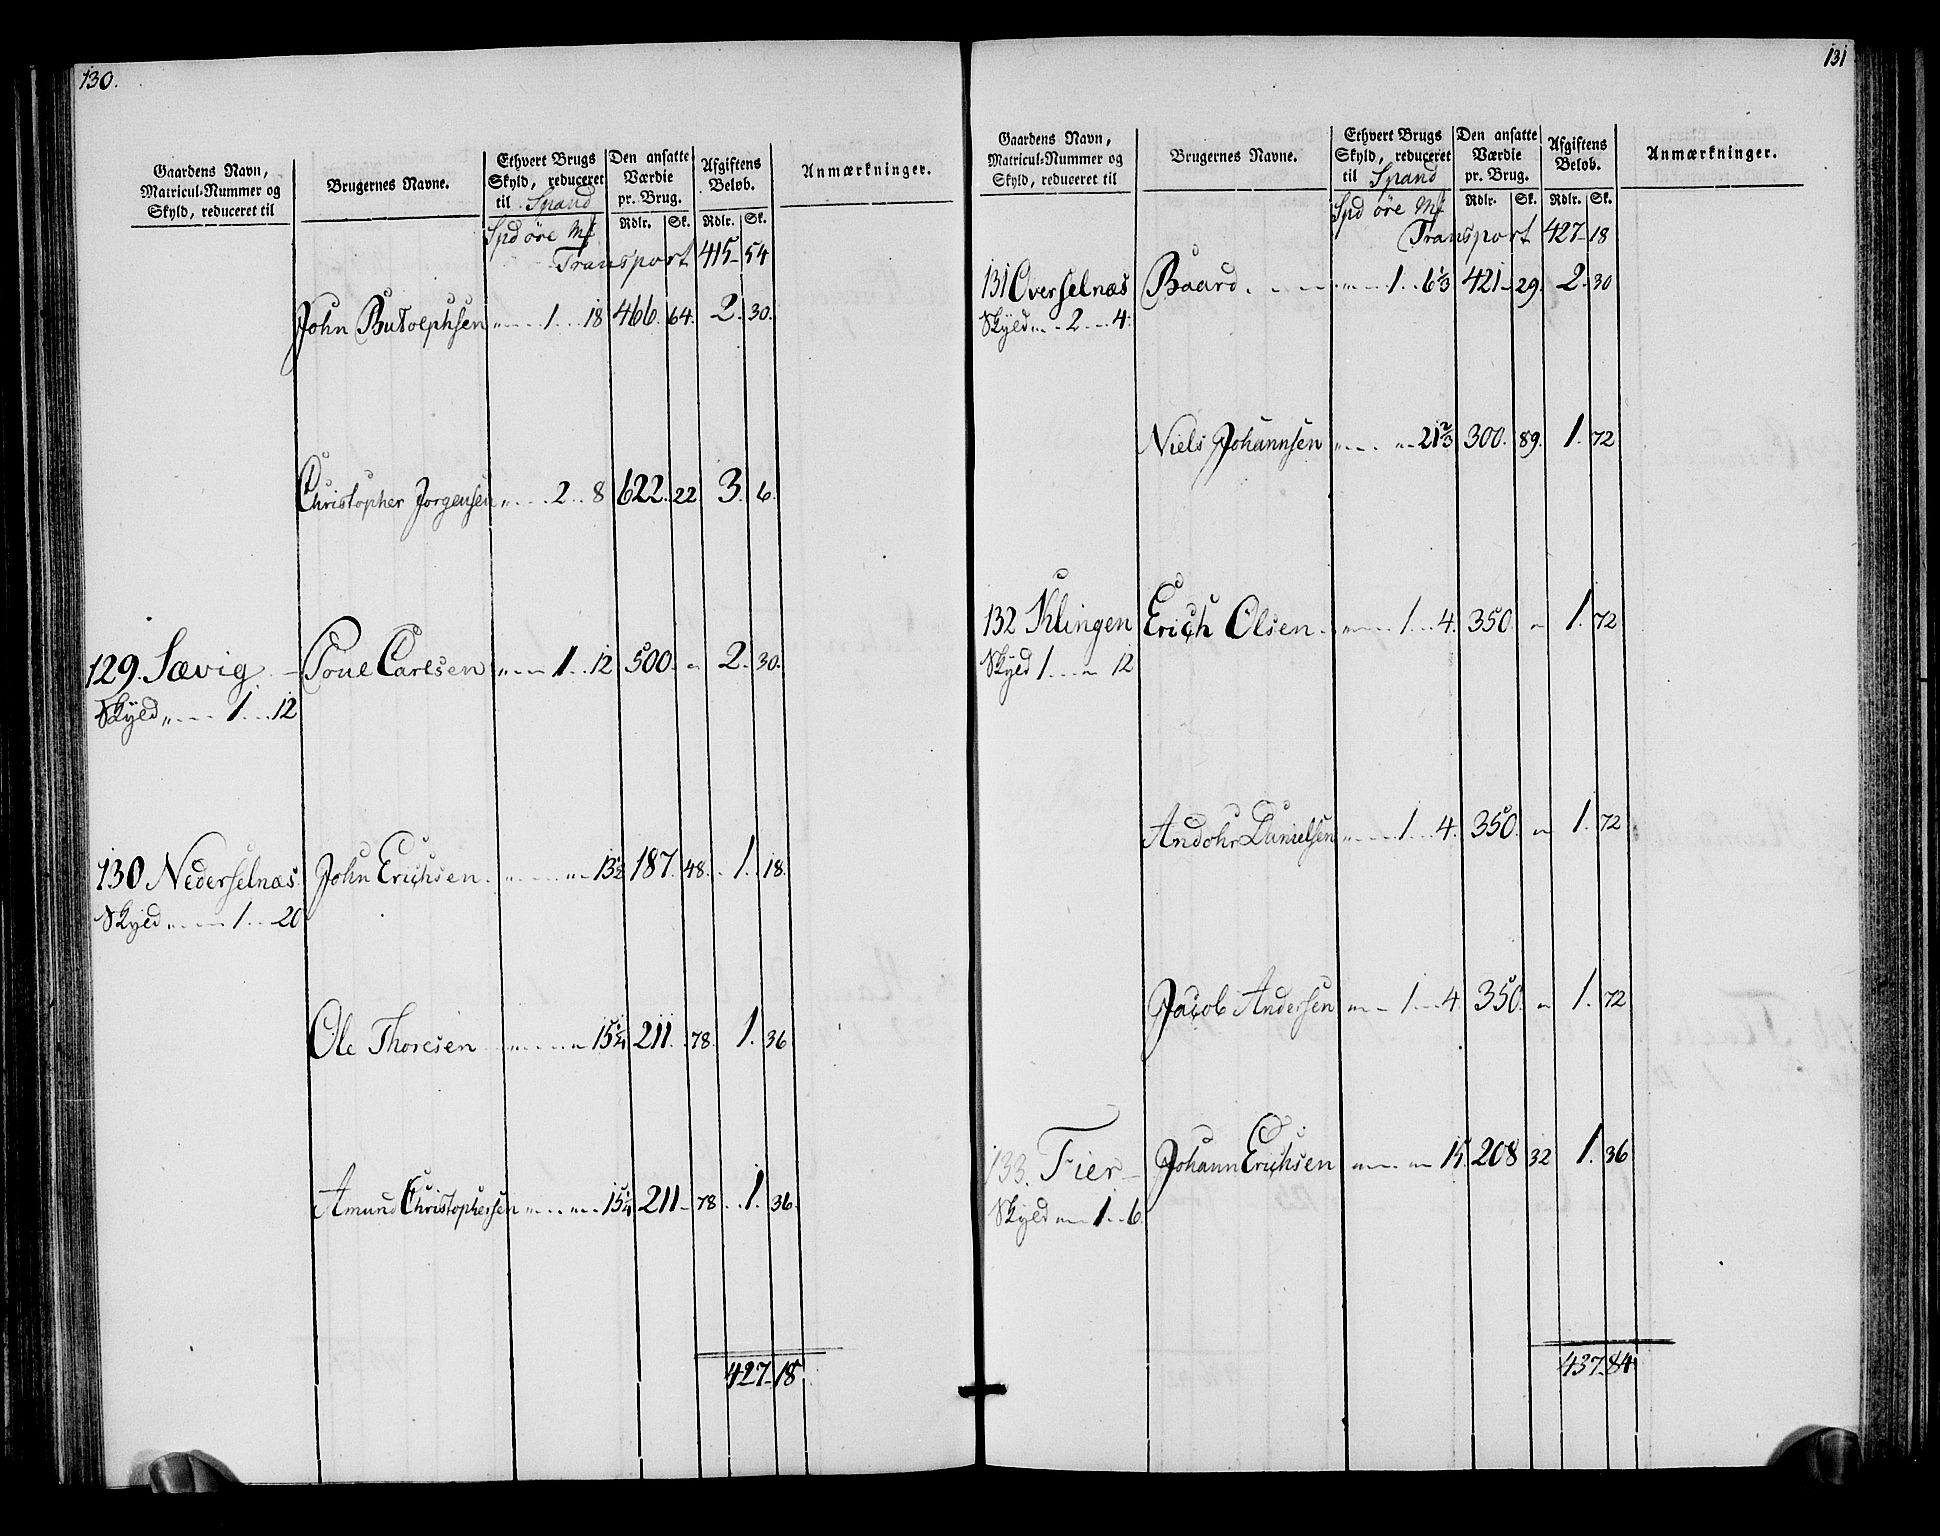 130.
Gaardens Navn, Matricul-Nummer og Skyld, reduceret til
Brugernes Navne.
Ethvert Brugs Skyld, reduceret til Spand
Den ansatte Værdie pr. Brug.
Afgiftens Beløb.
Anmærkninger.
Rdlr. Sk. Rdlr. Sk.
Spd øre Mk
Transport 415 - 54
John Butolphsen „ - - - 1 . . . 18 466. 64. 2. 30.
Christopher Jørgensen „ . . . . 2 . . 8 622. 22 3. 6.
129. Sævig - Poul Carlsen „ - - - 1 . . 12 500. „ 2. 30.
Skyld „ . - - - 1 . . . 12
130 Nederselnæs John Erichsen . „ - - - „ - 13½ 187. 48. . 1. . 18.
Skyld . „ - - - 1 . . - 20
Ole Thoresen „ . - . - . „ 15¼ 211. . 78. 1. 36
Amund Christophersen „ - . - „ - . 15¼ 211 - 78 . . 1. 36.
427 - 18.
131
Gaardens Navn, Matricul-Nummer og Skyld, reduceret til
Brugernes Navne.
Ethvert Brugs Skyld, reduceret til Spand
Den ansatte Værdie pr. Brug.
Afgiftens Beløb.
Anmærkninger.
Rdlr. Sk. Rdlr. Sk.
Spd øre Mk
Transport 427 - 18
131 Overselnæs Baard . - - - - „ - - - 1 . . 6⅓ 421 - 29. 2 - 30
Skyld „ . - 2 . - . 4.
Niels Johannsen „ - - . „ - 21⅔ 300. 89. 1. 72
132 Klingen Erich Olsen . „ - - - 1 . . . 4. 350. „ 1. 72
Skyld 1 . . - „ 12
Andohr Danielsen „ . - - - 1 . . . 4. 350. „ 1. 72
Jacob Andersen „ - - 1 . . . 4. 350. „ 1. 72
133. Fier - Johann Erichsen „ - - . „ 15. 208 32 1. 36
Skyld „ - - 1 . . 6.
437 - 84